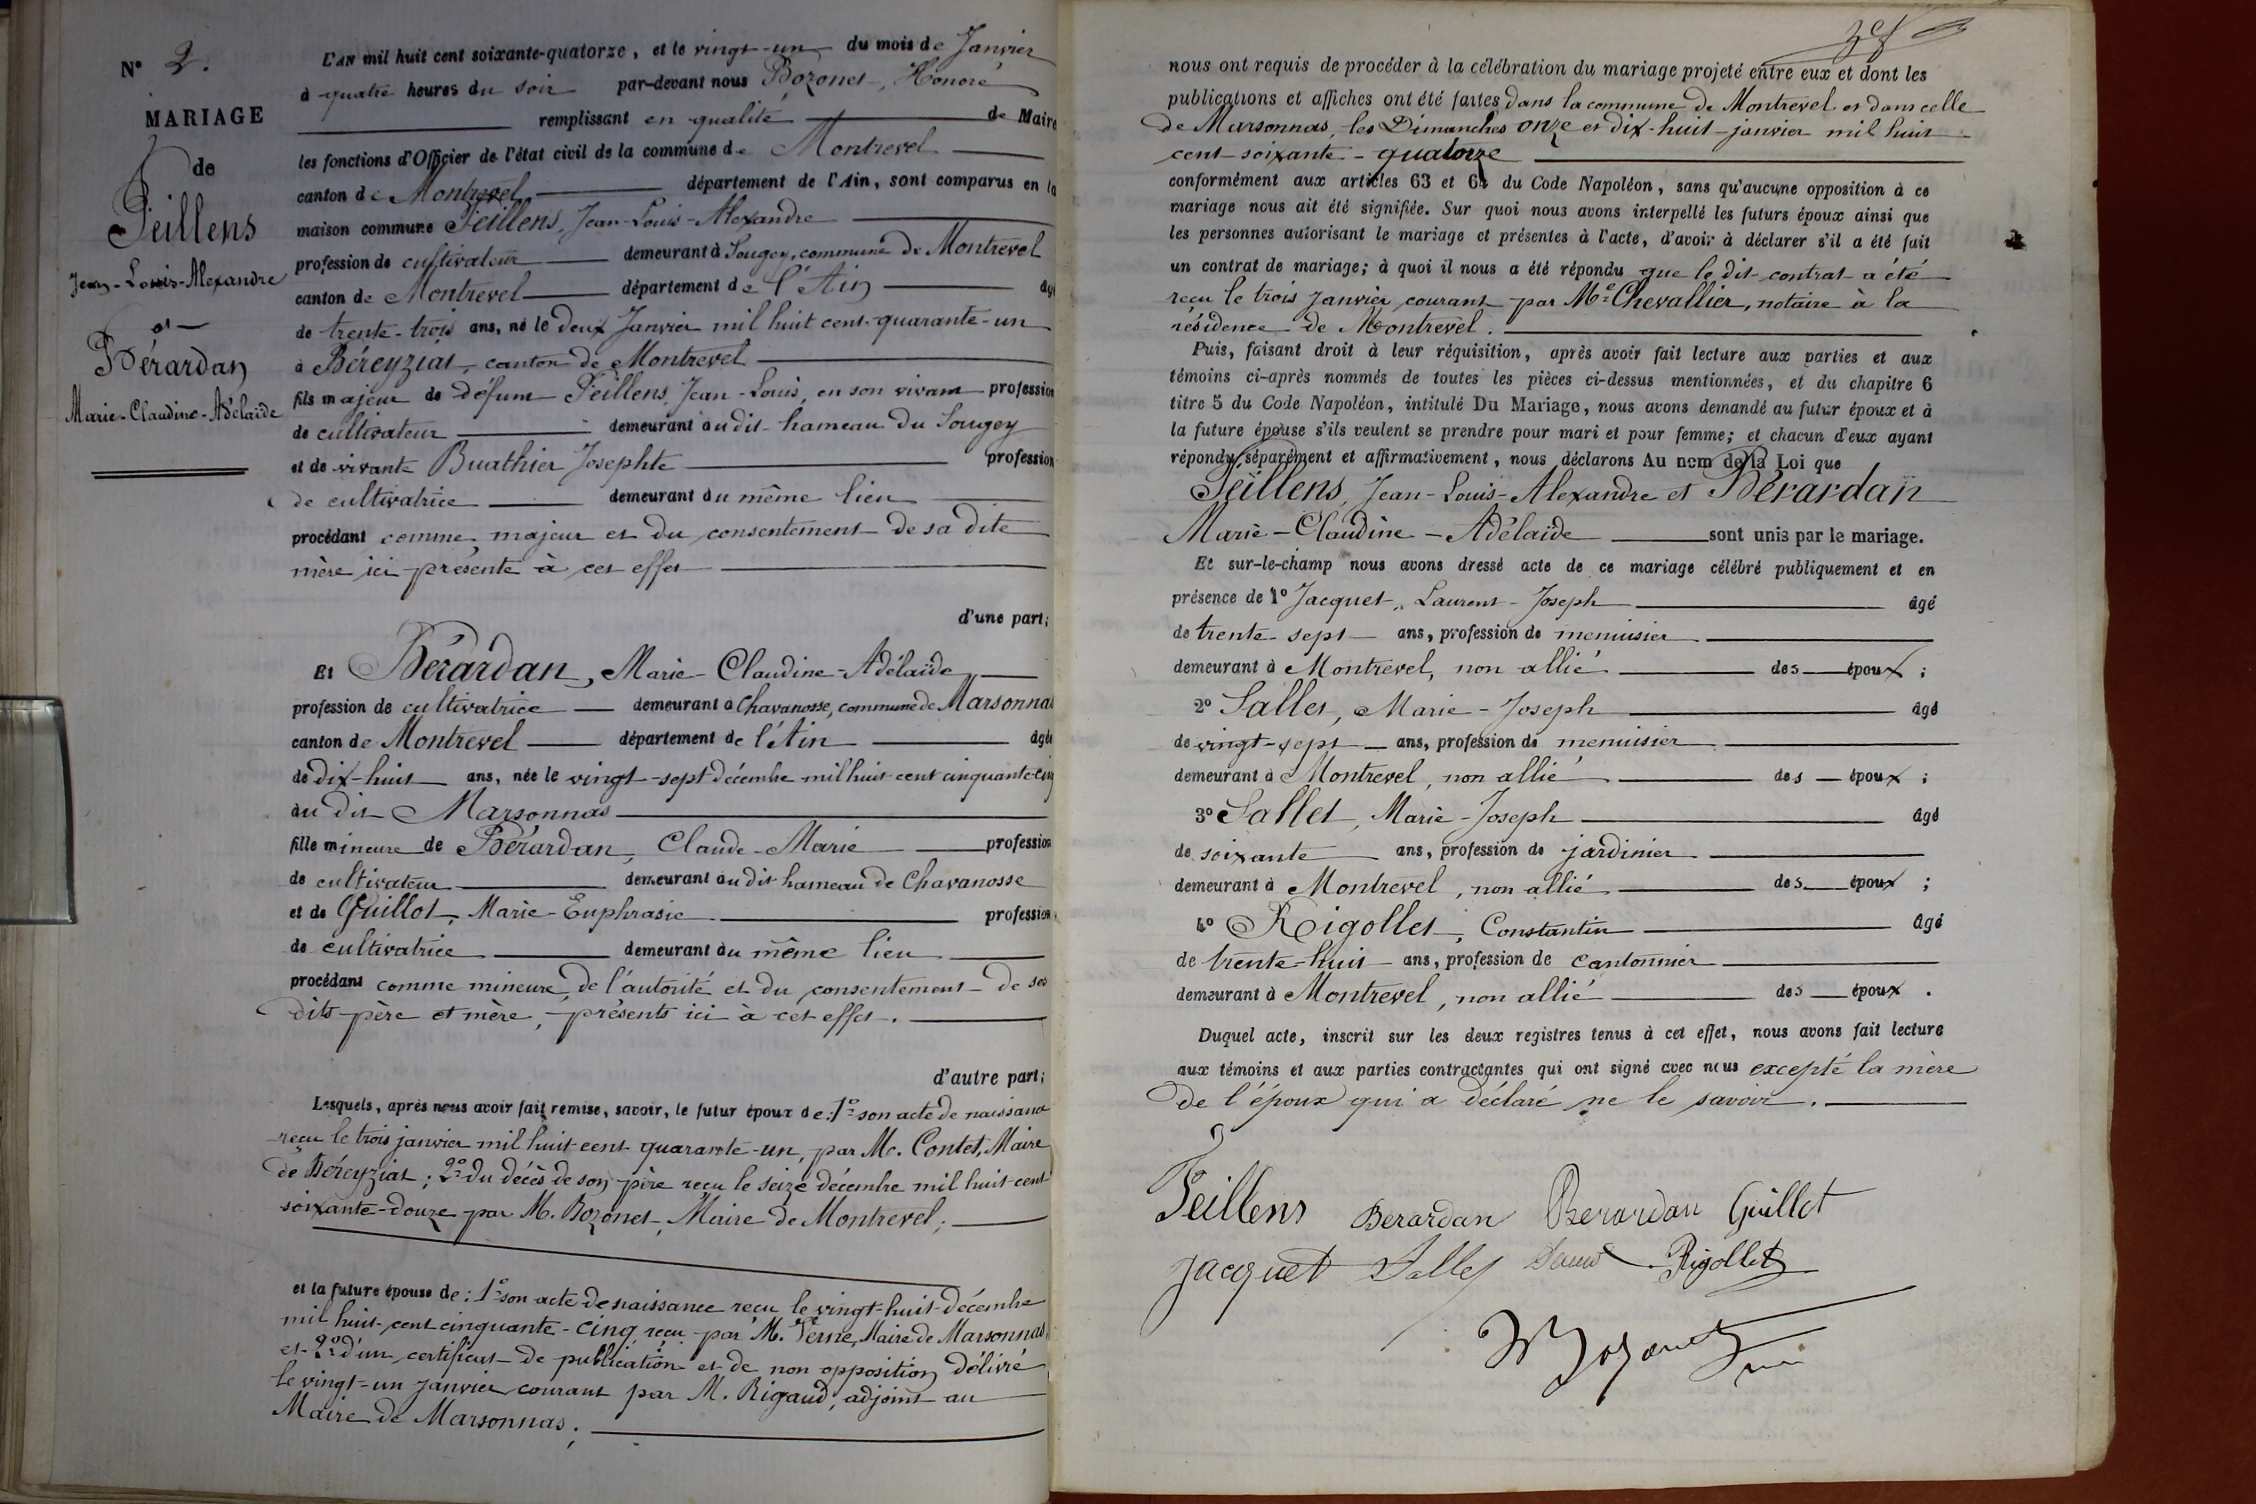 N° 2.
MARIAGE
de
Peillens
Jean-Louis-Alexandre
et
Bérardan
Marie-Claudine-Adélaïde
L'AN mil huit cent soixante-quatorze, et le vingt-un du mois de Janvier
à quatre heures du soir par-devant nous Bozonet, Honoré
remplissant en qualité de Maire
les fonctions d'Officier de l'état civil de la commune de Montrevel
canton de Montrevel département de l'Ain, sont comparus en la
maison commune Peillens, Jean-Louis-Alexandre
profession de cultivateur demeurant à Sougey, commune de Montrevel
canton de Montrevel département de l'Ain âgé
de trente-trois ans, né le deux Janvier mil huit cent-quarante-un
à Béreyziat, canton de Montrevel
fils majeur de défunt Peillens, Jean-Louis, en son vivant profession
de cultivateur demeurant au dit hameau du Sougey
et de vivante Buathier Josephte profession
de cultivatrice demeurant au même lieu
procédant comme majeur et du consentement de sa dite
mère ici présente à cet effet
d'une part;
Et Bérardan, Marie-Claudine-Adélaïde
profession de cultivatrice demeurant à Chavanosse, commune de Marsonnas
canton de Montrevel département de l'Ain âgée
de dix-huit ans, née le vingt-sept décembre mil huit cent cinquante-cinq
au dit Marsonnas
fille mineure de Bérardan, Claude-Marie profession
de cultivateur demeurant au dit hameau de Chavanosse
et de Guillot, Marie-Euphrasie profession
de cultivatrice demeurant au même lieu
procédant comme mineure, de l'autorité et du consentement de ses
dits père et mère, présents ici à cet effet.
d'autre part;
Lesquels, après nous avoir fait remise, savoir, le futur époux de: 1° son acte de naissance
reçu le trois janvier mil huit cent quarante-un, par M. Contet, Maire
de Béreyziat; 2° du décès de son père reçu le seize décembre mil huit cent
soixante-douze par M. Bozonet, Maire de Montrevel;
et la future épouse de: 1° son acte de naissance reçu le vingt-huit décembre
mil huit-cent cinquante-cinq reçu par M. Perne, Maire de Marsonnas,
et 2° d'un certificat de publication et de non opposition délivré
le vingt-un janvier courant par M. Rigaud, adjoint au
Maire de Marsonnas.
nous ont requis de procéder à la célébration du mariage projeté entre eux et dont les
publications et affiches ont été faites dans la commune de Montrevel et dans celle
de Marsonnas, les Dimanches onze et dix-huit janvier mil huit
cent-soixante-quatorze
conformément aux articles 63 et 64 du Code Napoléon, sans qu'aucune opposition à ce
mariage nous ait été signifiée. Sur quoi nous avons interpellé les futurs époux ainsi que
les personnes autorisant le mariage et présentes à l'acte, d'avoir à déclarer s'il a été fait
un contrat de mariage; à quoi il nous a été répondu que le dit contrat a été
reçu le trois Janvier courant par Me Chevallier, notaire à la
résidence de Montrevel.
Puis, faisant droit à leur réquisition, après avoir fait lecture aux parties et aux
témoins ci-après nommés de toutes les pièces ci-dessus mentionnées, et du chapitre 6
titre 5 du Code Napoléon, intitulé Du Mariage, nous avons demandé au futur époux et à
la future épouse s'ils veulent se prendre pour mari et pour femme; et chacun d'eux ayant
répondu, séparément et affirmativement, nous déclarons Au nom de la Loi que
Peillens, Jean-Louis-Alexandre et Bérardan
Marie-Claudine-Adélaïde sont unis par le mariage.
Et sur-le-champ nous avons dressé acte de ce mariage célébré publiquement et en
présence de 1° Jacquet, Laurent-Joseph âgé
de trente-sept ans, profession de menuisier
demeurant à Montrevel, non allié des époux;
2° Sallet, Marie-Joseph âgé
de vingt-sept ans, profession de menuisier
demeurant à Montrevel, non allié des époux;
3° Sallet, Marie-Joseph âgé
de soixante ans, profession de jardinier
demeurant à Montrevel, non allié des époux;
4° Rigollet, Constantin âgé
de trente-huit ans, profession de cantonnier
demeurant à Montrevel, non allié des époux.
Duquel acte, inscrit sur les deux registres tenus à cet effet, nous avons fait lecture
aux témoins et aux parties contractantes qui ont signé avec nous excepté la mère
de l'époux qui a déclaré ne le savoir.
Peillens Berardan Berardan Guillot
Jacquet Sallet Rigollet
Bozonet